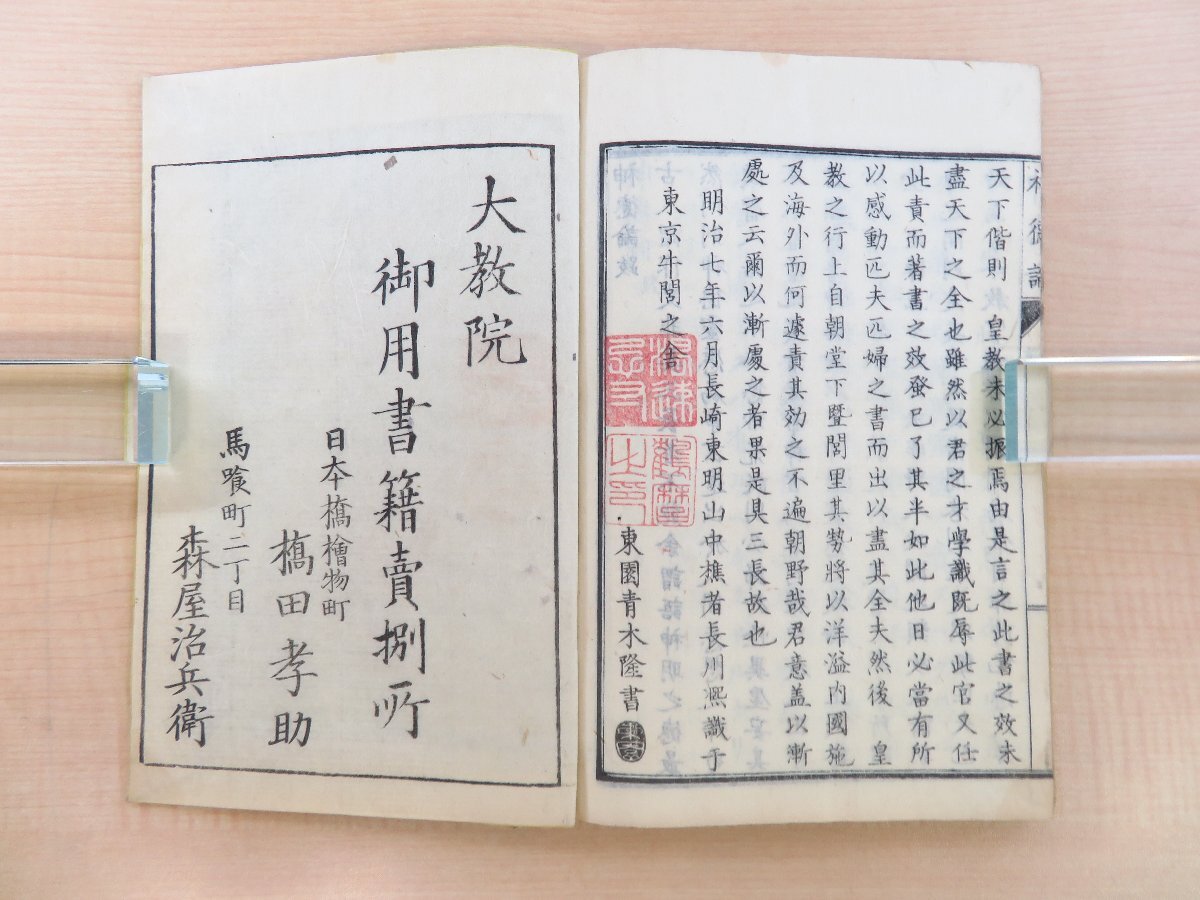 天下偕則　皇教未必振焉由是言之此書之效未
盡天下之全也雖然以君之才學識既辱此官又任
此責而著書之效發已了其半如此他日必當有所
以感動匹夫匹婦之書而出以盡其全夫然後　皇
教之行上自朝堂下曁閭里其勢將以洋溢内國施
及海外而何遽責其効之不遍朝野哉君意盖以漸
處之云爾以漸處之者果是具三長故也
明治七年六月長崎東明山中樵者長川煕識于
東京牛閭之舎
東園青木隆書
大教院
御用書籍賣捌所
日本橋檜物町
橋田孝助
馬喰町二丁目
森屋治兵衛